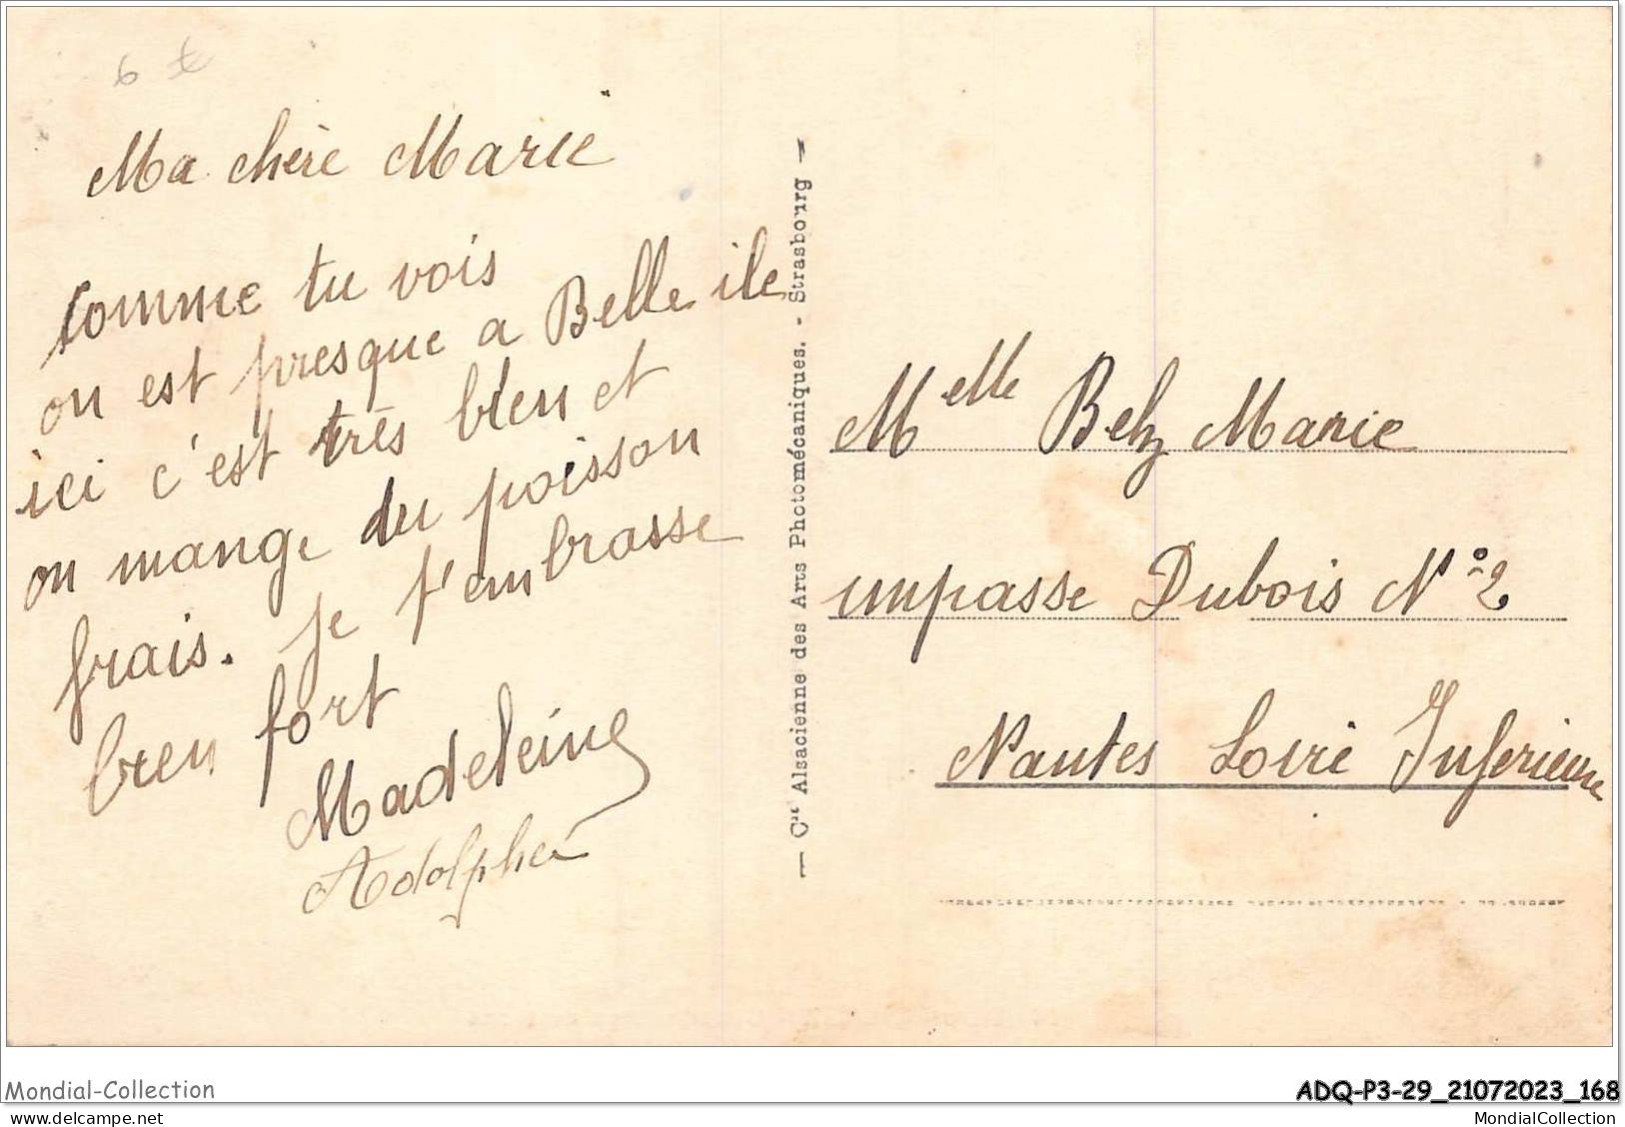 Ma chère Marie
comme tu vois
on est presque a Belle ile
ici c'est très bien et
on mange du poisson
frais. je t'embrasse
bien fort
Madeleine
Adolphe
— Cie Alsacienne des Arts Photomécaniques. - Strasbourg —
Melle Belz Marie
impasse Dubois N° 2
Nantes Loire Inferieure
Mondial-Collection
ADQ-P3-29_21072023_168
www.delcampe.net
MondialCollection